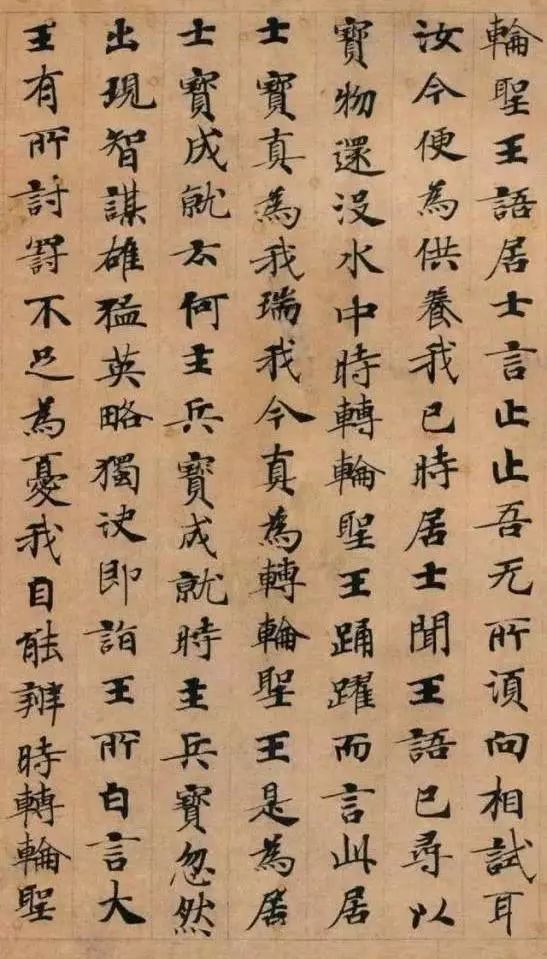 輪聖王語居士言止止吾无所湏向相試耳
汝今便為供養我已時居士聞王語已尋以
寶物還沒水中時轉輪聖王踊躍而言此居
士寶真為我瑞我今真為轉輪聖王是為居
士寶成就云何主兵寶成就時主兵寶忽然
出現智謀雄猛英略獨决即詣王所白言大
王有所討罸不足為憂我自能辦時轉輪聖